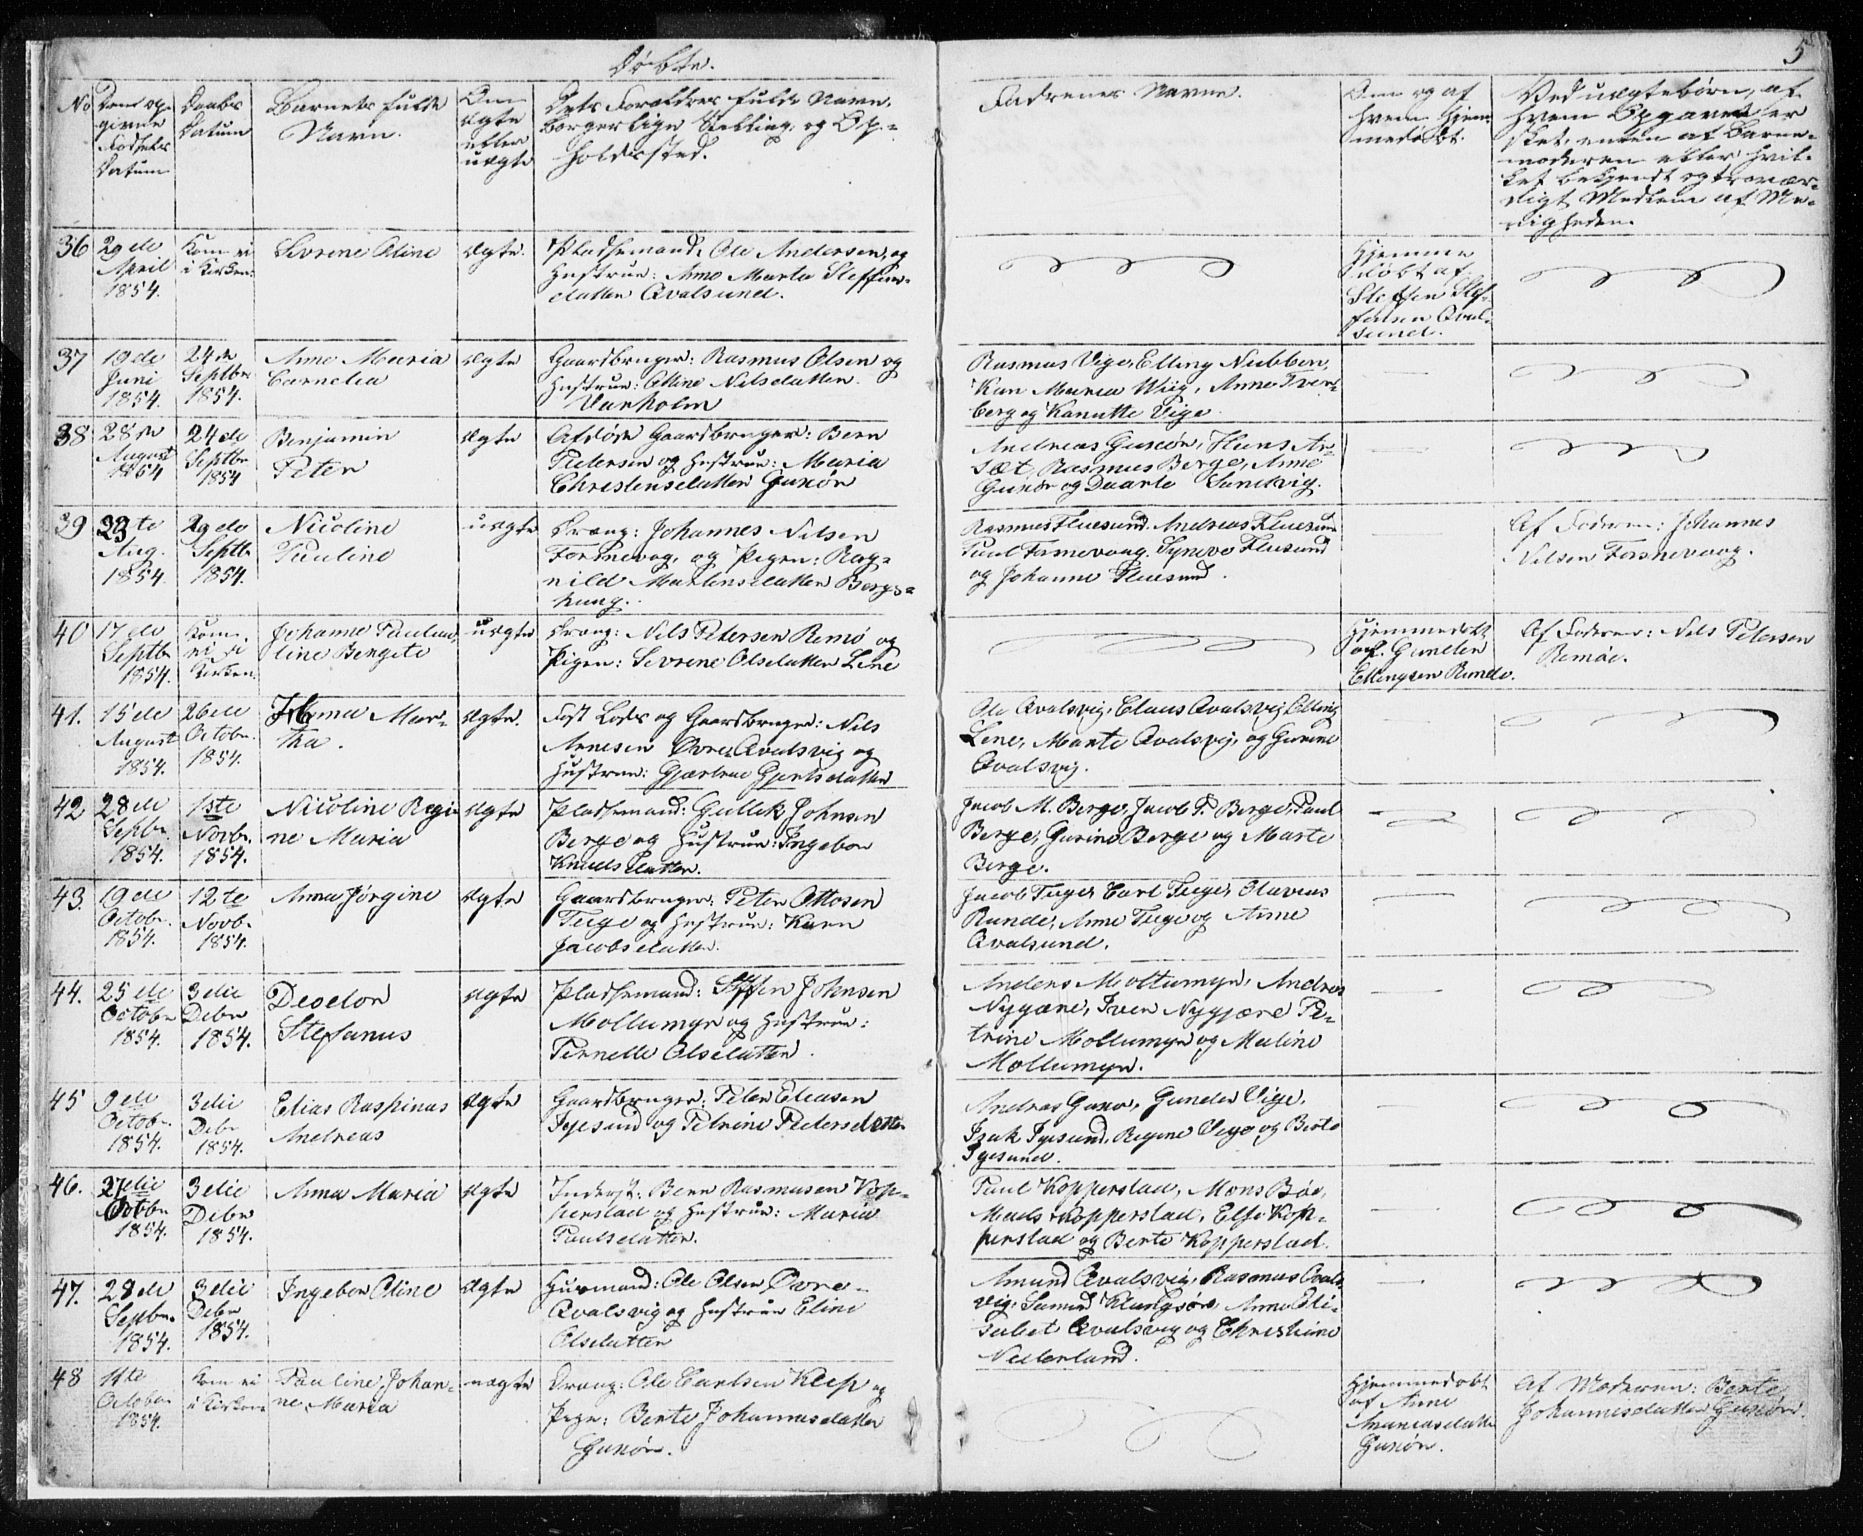 Døbte.
5
No
Den opgivne Fødsels Datum
Daabs Datum
Barnets fulde Navn.
Om ægte eller uægte
Dets Forældres fulde Navn, borgerlige Stilling, og Opholdssted.
Faddrenes Navne.
Om og af hvem hjemmedøbt.
Ved uægtebørn, af hvem Opgaven er sket, enten af Barnemoderen eller hvilket bekjendt og troværdigt Medlem af Menigheden.
36
29de April 1854.
Kom ei i Kirken.
Sivrine Oline
ægte.
Pladsemand: Ole Andersen, og
Hustrue: Ane Marta Steffensdatter Qvalsund.
Hjemmedøbt af Steffen Steffensen Qvalsund.
37
19de Juni 1854.
24de Septbr 1854.
Anne Maria
Cornelia
ægte
Gaardbruger: Rasmus Olsen og
Hustrue: Olline Nilsdatter
Vanholm
Rasmus Vige, Elling Nubben,
Karn Maria Wiig, Anne Tverberg og Kanutte Vige.
38
28de August 1854
24de Septbr 1854
Benjamin
Peter
ægte
Afdøde Gaardbruger: Bern
Pedersen og Hustrue: Maria
Christensdatter Gurskøe
Rasmus Berge, Anne
og Daarte Sandvig.
39
23de Aug. 1854
29de Septbr 1854.
Nicoline
Pauline
uægte
Dreng: Johannes Nilsen
Fosnevog, og Pigen: Ragnild Martinsdatter Bergshaug.
Rasmus Fluesund, Andreas Fluesund
Paul Fosnevaag, Syneve Fluesund
og Johanne Fluesund.
Af Faderen: Johannes
Nilsen Fosnevaag.
40
17de Septbr 1854.
Kom ei i Kirken.
Johanne Pauline Bengete
uægte
Dreng: Nils Petersen Remø og
Pigen: Sevrine Olsdatter Leine
Hjemmedøbt
af Gunder
Ellingsen Runde.
Af Faderen: Nils Petersen
Remøe.
41.
15de August 1854.
26de Octobr. 1854.
Martha.
ægte.
Fast Lods og Gaardbruger: Nils
Arnesen Øvre Qvalsvig og
Hustrue: Gjertsdatter
Ole Qvalsvig, Claus Qvalsvig, Elling
Leine, Marte Qvalsvig, og Gurine
Qvalsvig.
42
28de Septbr. 1854.
1ste Novbr. 1854.
Nicoline Regine Maria
ægte
Pladsemand: Gullik Johnsen
Berge og Hustrue: Ingebor
Knudsdatter.
Jacob M. Berge, Jacob P. Berge, Paul
Berge, Gurine Berge og Marte
Berge.
43.
19de Octobr. 1854.
12te Novbr. 1854.
Anna Jørgine
ægte
Gaardbruger: Peter Ottosen
Teige og Hustrue: Karn
Jacobsdatter.
Jacob Teige, Carl Teige, Olavius
Runde, Anne Teige og Anne
Qvalsund.
44.
25de Octobr 1854.
3die Debr 1854.
Deselon
Stefanus
ægte
Pladsemand: Steffen Johnsen
Moltumyr og Hustrue:
Pernelle Olsdatter.
Anders Moltumyr, Andreas
Nygjære, Iver Nygjære, Petrine Moltumyr og Maline
Moltumyr.
45
9de Octobr. 1854.
3die Debr 1854.
Elias Raspinus
Andreas
ægte
Gaardbruger: Peter Eliasen
Igesund og Petrine Pedersdatter
Andreas Gurskø, Gunder Vige,
Isak Igesund, Regine Vige og Berte
Igesund.
46.
27die Octbr 1854.
3die Debr 1854.
Anna Maria
ægte
Inderst: Bern Rasmusen Kopperstad og Hustrue: Maria
Paulsdatter.
Paul Kopperstad, Mons Bøe,
Mads Kopperstad, Else Kopperstad og Berte Kopperstad.
47.
28de Septbr. 1854.
3die Debr 1854.
Ingebor Oline
ægte
Huusmand: Ole Olsen Øvre
Qvalsvig og Hustrue Eline
Olsdatter
Amund Qvalsvig, Rasmus Qvalsvig, Klungsør, Anne Elisabet Qvalsvig og Christiane
Nederland.
48
1ste October 1854.
Kom ei i Kirken
Pauline Johanne Maria
uægte
Dreng: Ole Carlsen og
Pige: Berte Johannesdatter
Gurskøe.
Hjemmedøbt
af Anne
Ananiasdatter
Gurskøe.
Af Moderen: Berte
Johannesdatter Gurskøe.